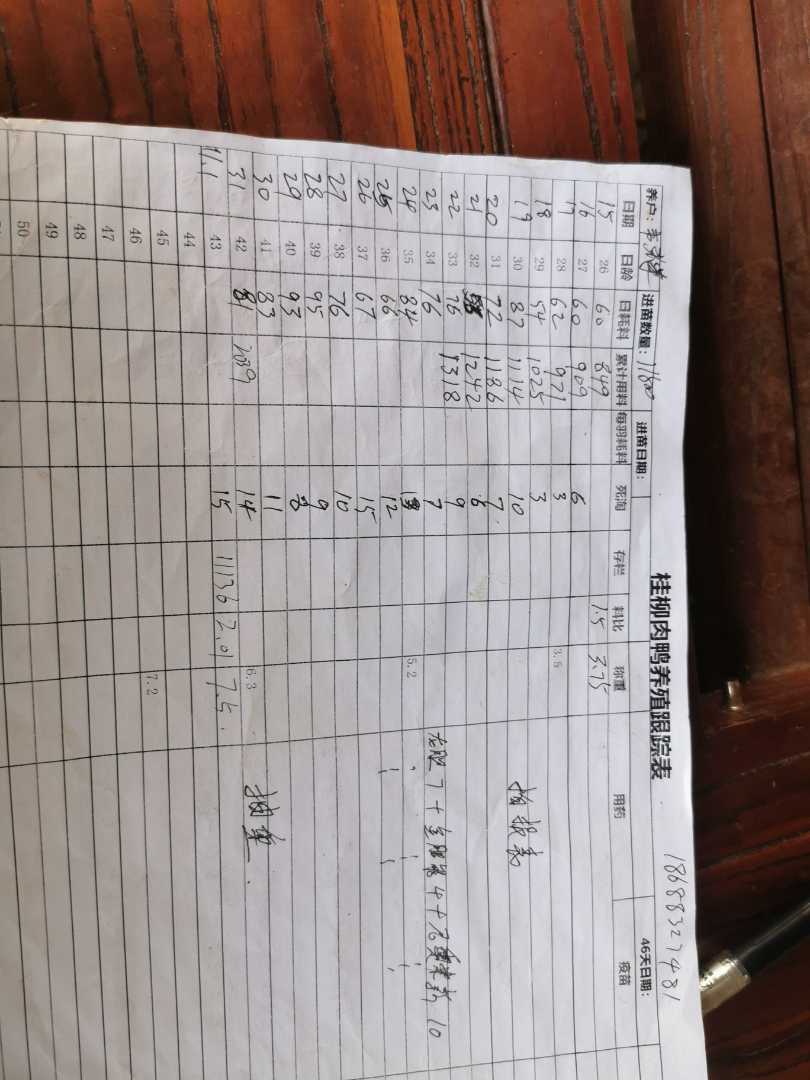 桂柳肉鸭养殖跟踪表 18688327481
养户: 进苗数量:11800 进苗日期: 46天日期:
日期 日龄 日耗料 累计用料 每羽耗料 死淘 存栏 料比 称重 用药 疫苗
15 26 60 849 1.5 3.75
16 27 60 909 6
17 28 62 971 3 3.5
18 29 54 1025 3
19 30 87 1114 10 拍报表
20 31 72 1186 7
21 32 1242 6
22 33 76 1318 9
23 34 76 7 7+ 4+ 10
24 35 84 5.2
25 36 66 12
26 37 67 15
27 38 76 10
28 39 95 9
29 40 93 8
30 41 83 11
31 42 81 2089 14 6.3 抽血
11.1 43 15 11136 2.01 7.5
44
45 7.2
46
47
48
49
50